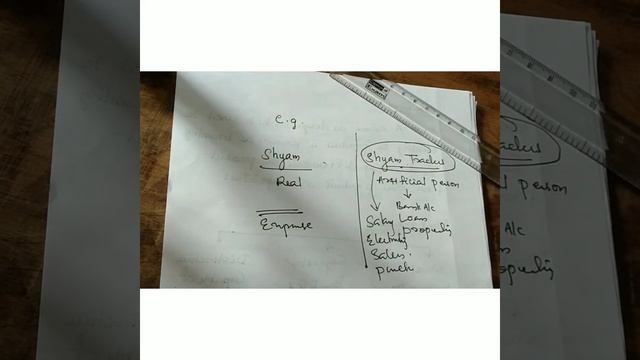 e.g.
Shyam
Real
Expense
Shyam Traders
Artificial person
Bank A/c
Salary Loan
property
Electricity
Sales.